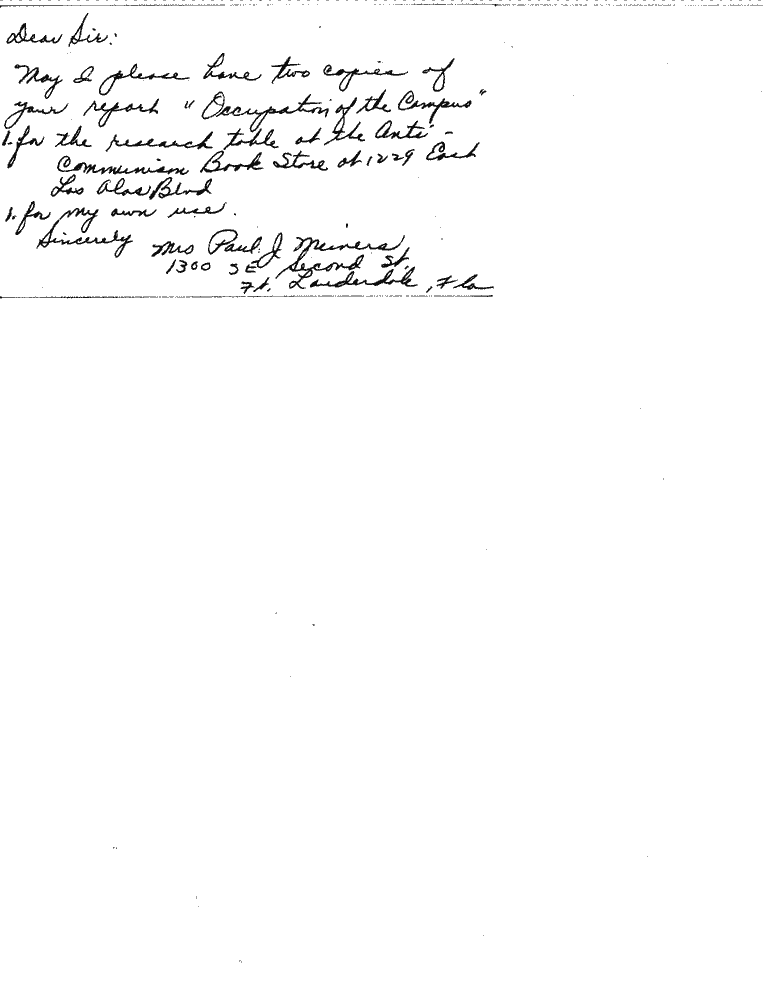 Dear Sir:
May I please have two copies of
your report "Occupation of the Campus"
1. for the research table at the Anti-
Communism Book Store at 1229 East
Las Olas Blvd
1. for my own use.
Sincerely Mrs Paul J Meiners
1300 SE Second St.
Ft. Lauderdale, Fla